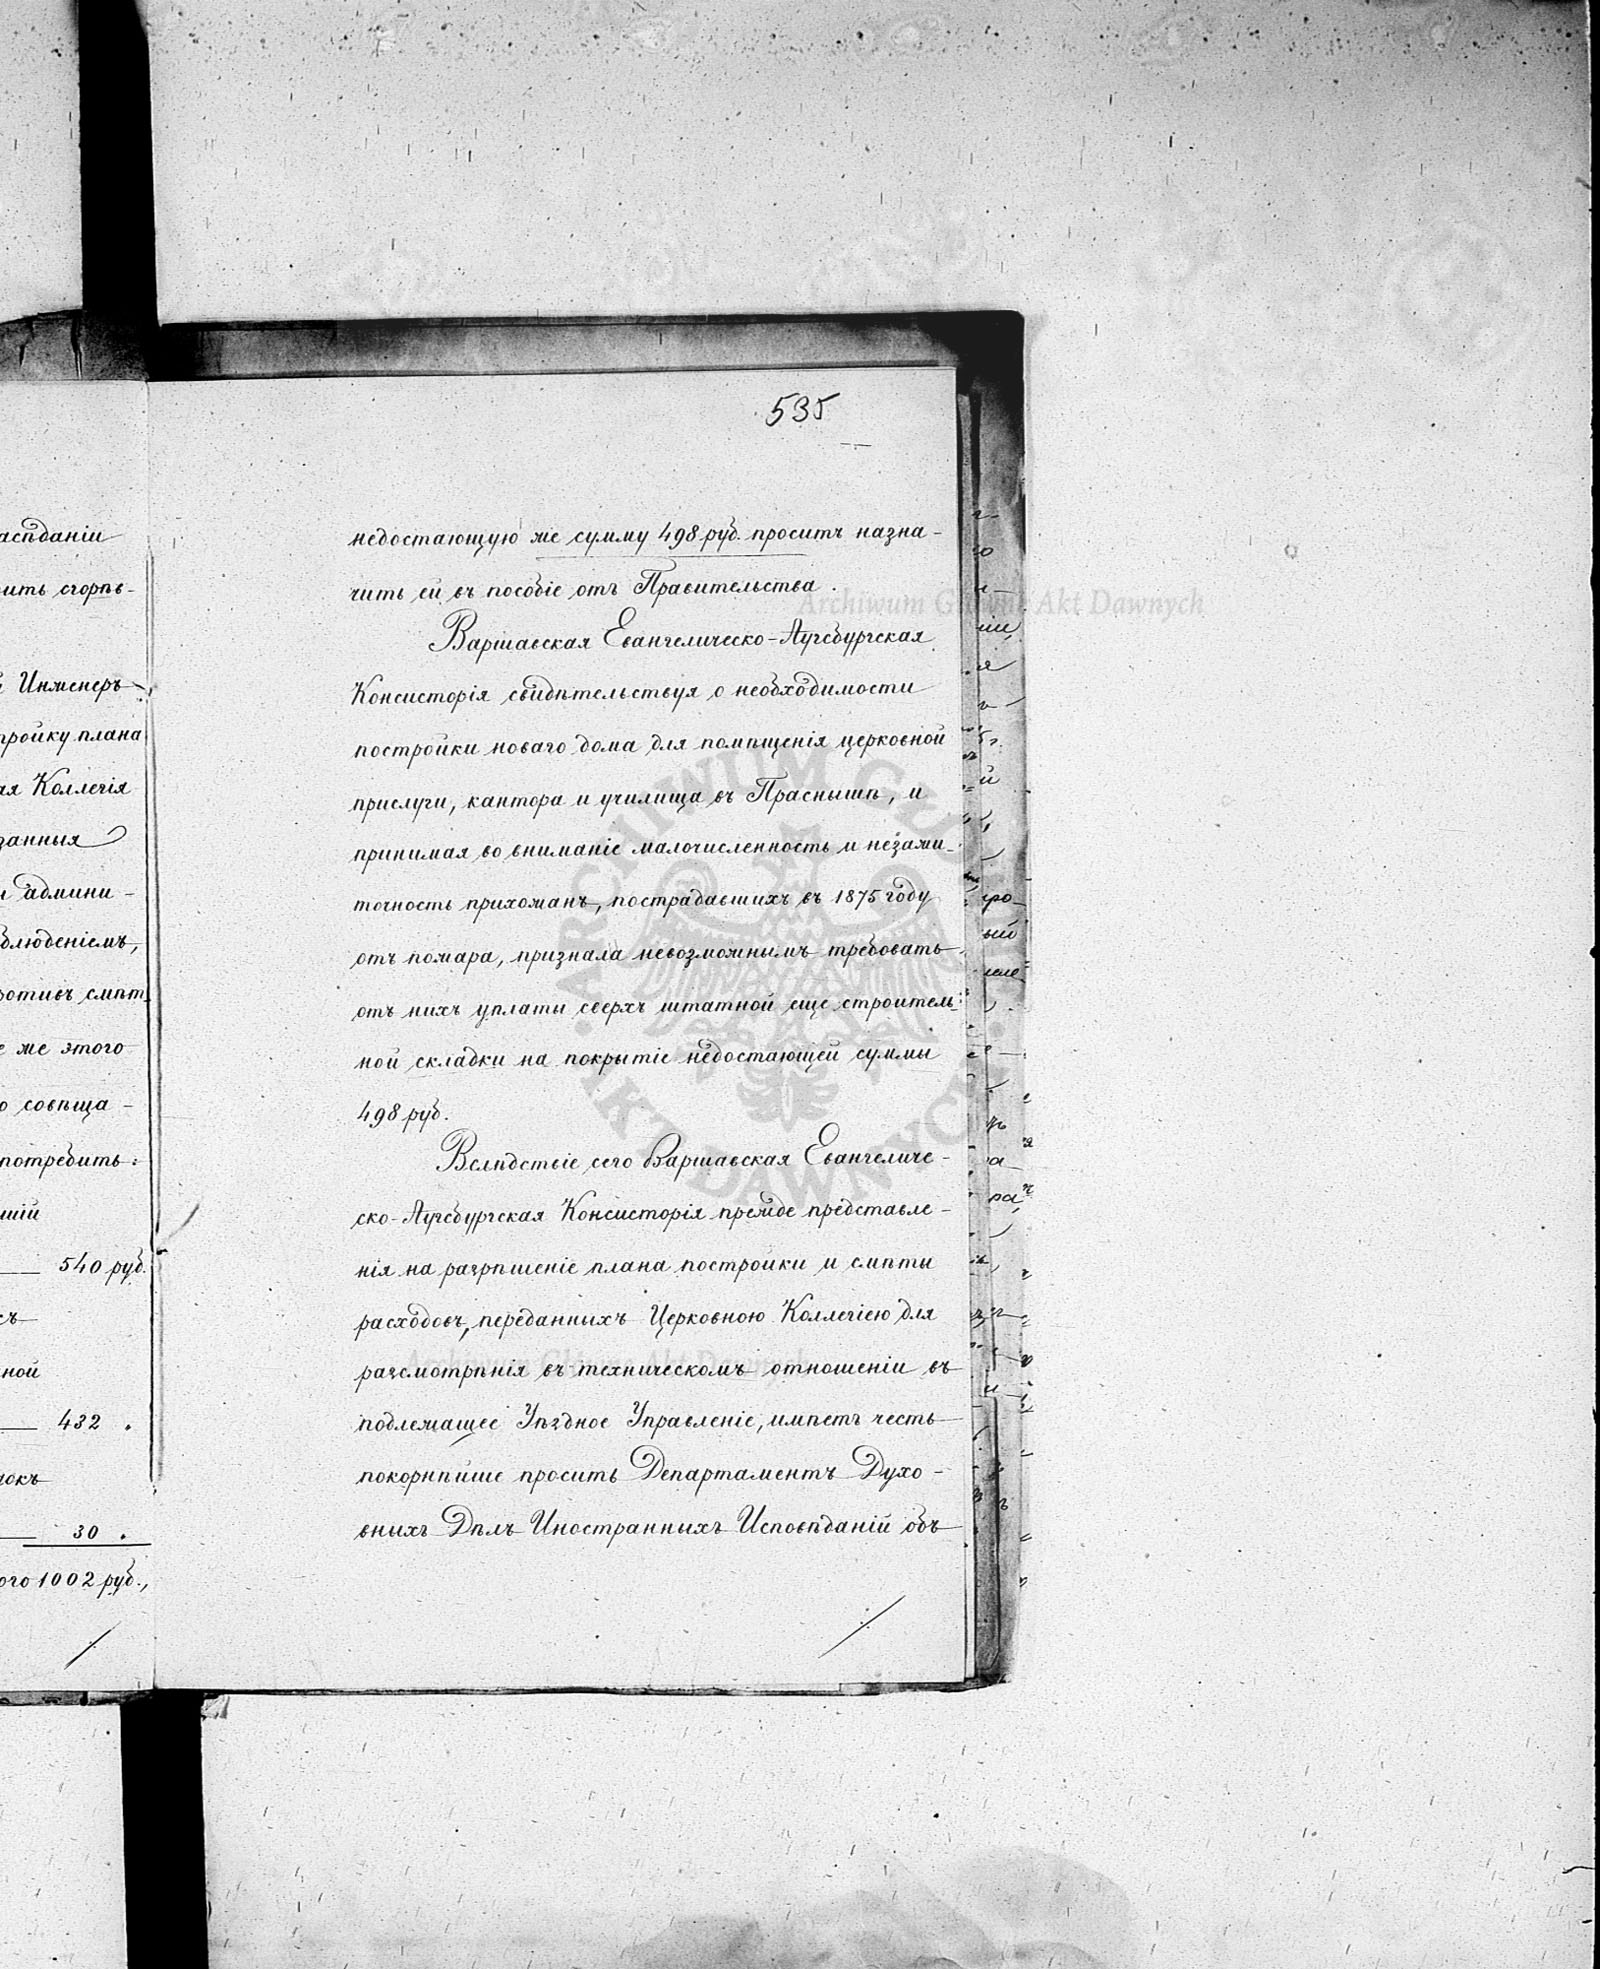 535
недостающую же сумму 498 руб. проситъ назна-
чить ей въ пособіе отъ Правительства.
Варшавская Евангелическо-Аугсбургская
Консисторія свидѣтельствуя о необходимости
постройки новаго дома для помѣщенія церковной
прислуги, кантора и училища въ Праснышѣ, и
принимая во вниманіе малочисленность и незажи-
точность прихожанъ, пострадавшихъ въ 1875 году
отъ пожара, признала невозможнымъ требовать
отъ нихъ уплаты сверхъ штатной еще строитель-
ной складки на покрытіе недостающей суммы
498 руб.
Вслѣдствіе сего Варшавская Евангеличе-
ско-Аугсбургская Консисторія прежде представле-
нія на разрѣшеніе плана постройки и смѣты
расходовъ, переданныхъ Церковною Коллегіею для
разсмотрѣнія въ техническомъ отношеніи въ
подлежащее Уѣздное Управленіе, имѣетъ честь
покорнѣйше просить Департаментъ Духо-
вныхъ Дѣлъ Иностранныхъ Исповѣданій объ
Инженеръ
тройку плана
ая Коллегія
занныя
админи-
блюденіемъ,
ротивъ смѣт
же этого
совѣща-
потребить:
540 руб.
432
30
1002 руб.,
Archiwum Główne Akt Dawnych
ARCHIWUM GŁÓWNE AKT DAWNYCH
Archiwum Główne Akt Dawnych